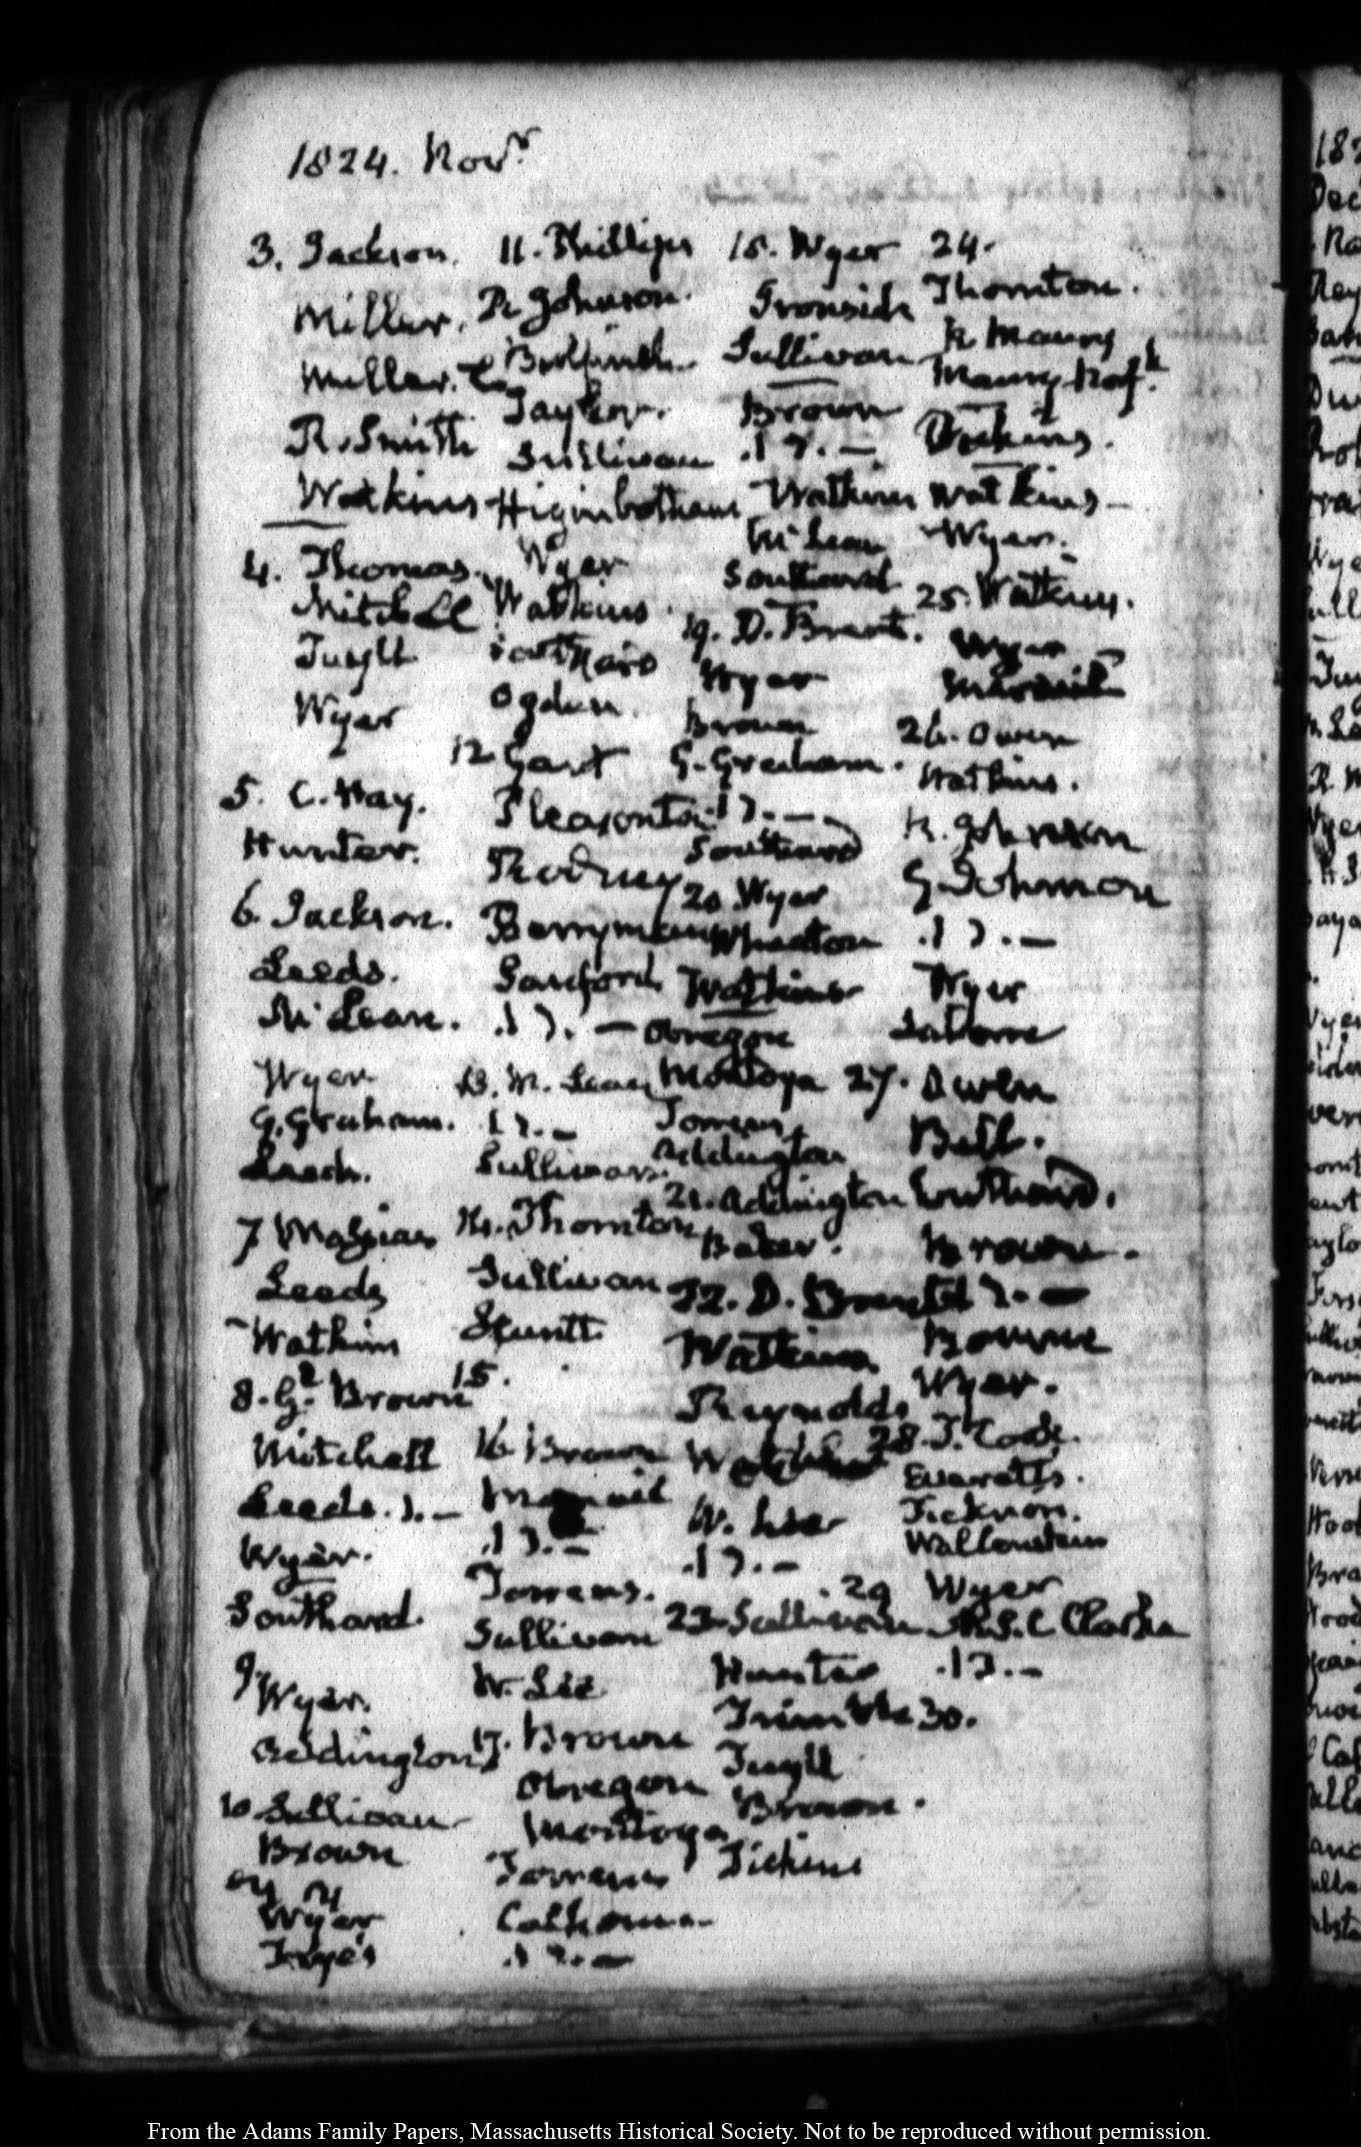 1824. Novr.
3. Jackson.
Miller.
Miller.
R. Smith
Watkins
4. Thomas.
Mitchell
Tuyll
Wyer
5. C. Hay.
Hunter.
6. Jackson.
Leeds.
McLean.
Wyer
G. Graham.
Leeds.
7
Leeds
Watkins
8. G. Brown
Mitchell
Leeds. ). —
Wyer.
Southard.
9. Wyer.
Addington
10 Sullivan
Brown
Wyer
Frye's
11. Phillips
R Johnson.
Taylor.
Sullivan
Higinbotham
Wyer
Watkins
Southard
Ogden.
12
Pleasonton
Rodney
Berryman
Sanford
.1 ). —
13. M. Lean
1 ). —
Sullivan.
14. Thornton
Sullivan
15.
16. Brown
.1 ). —
Torrens.
Sullivan
W. Lee
17. Brown
Obregon
Montoya
Torrens
Calhoun
.1 ). —
18. Wyer
Ironside
Sullivan
Brown
.1 ). —
Watkins
McLean
Southard
19. D. Brent.
Wyer
Brown
G. Graham.
1 ). —
Southard
20 Wyer
Wheaton
Watkins
Obregon
Montoya
Torrens
Addington
21. Addington
Baker.
22. D. Brent
Watkins
Reynolds
W. Lee
.1 ). —
23. Sullivan
Hunter
Trimble
Tuyll
Brown.
Dickins
24.
Thornton.
R Maury
Maury
Dickins.
Watkins —
Wyer.
25. Watkins.
Wyer
26. Owen
Watkins.
R. Johnson
G. Johnson
.1 ). —
Wyer
27. Owen
Bell.
Southard.
Brown.
1 ). —
Bourne
Wyer.
28. T. Cook.
Everetts.
Ticknor.
Wallenstein
29 Wyer
R. S. C Clarke
.1 ). —
30.
From the Adams Family Papers, Massachusetts Historical Society. Not to be reproduced without permission.